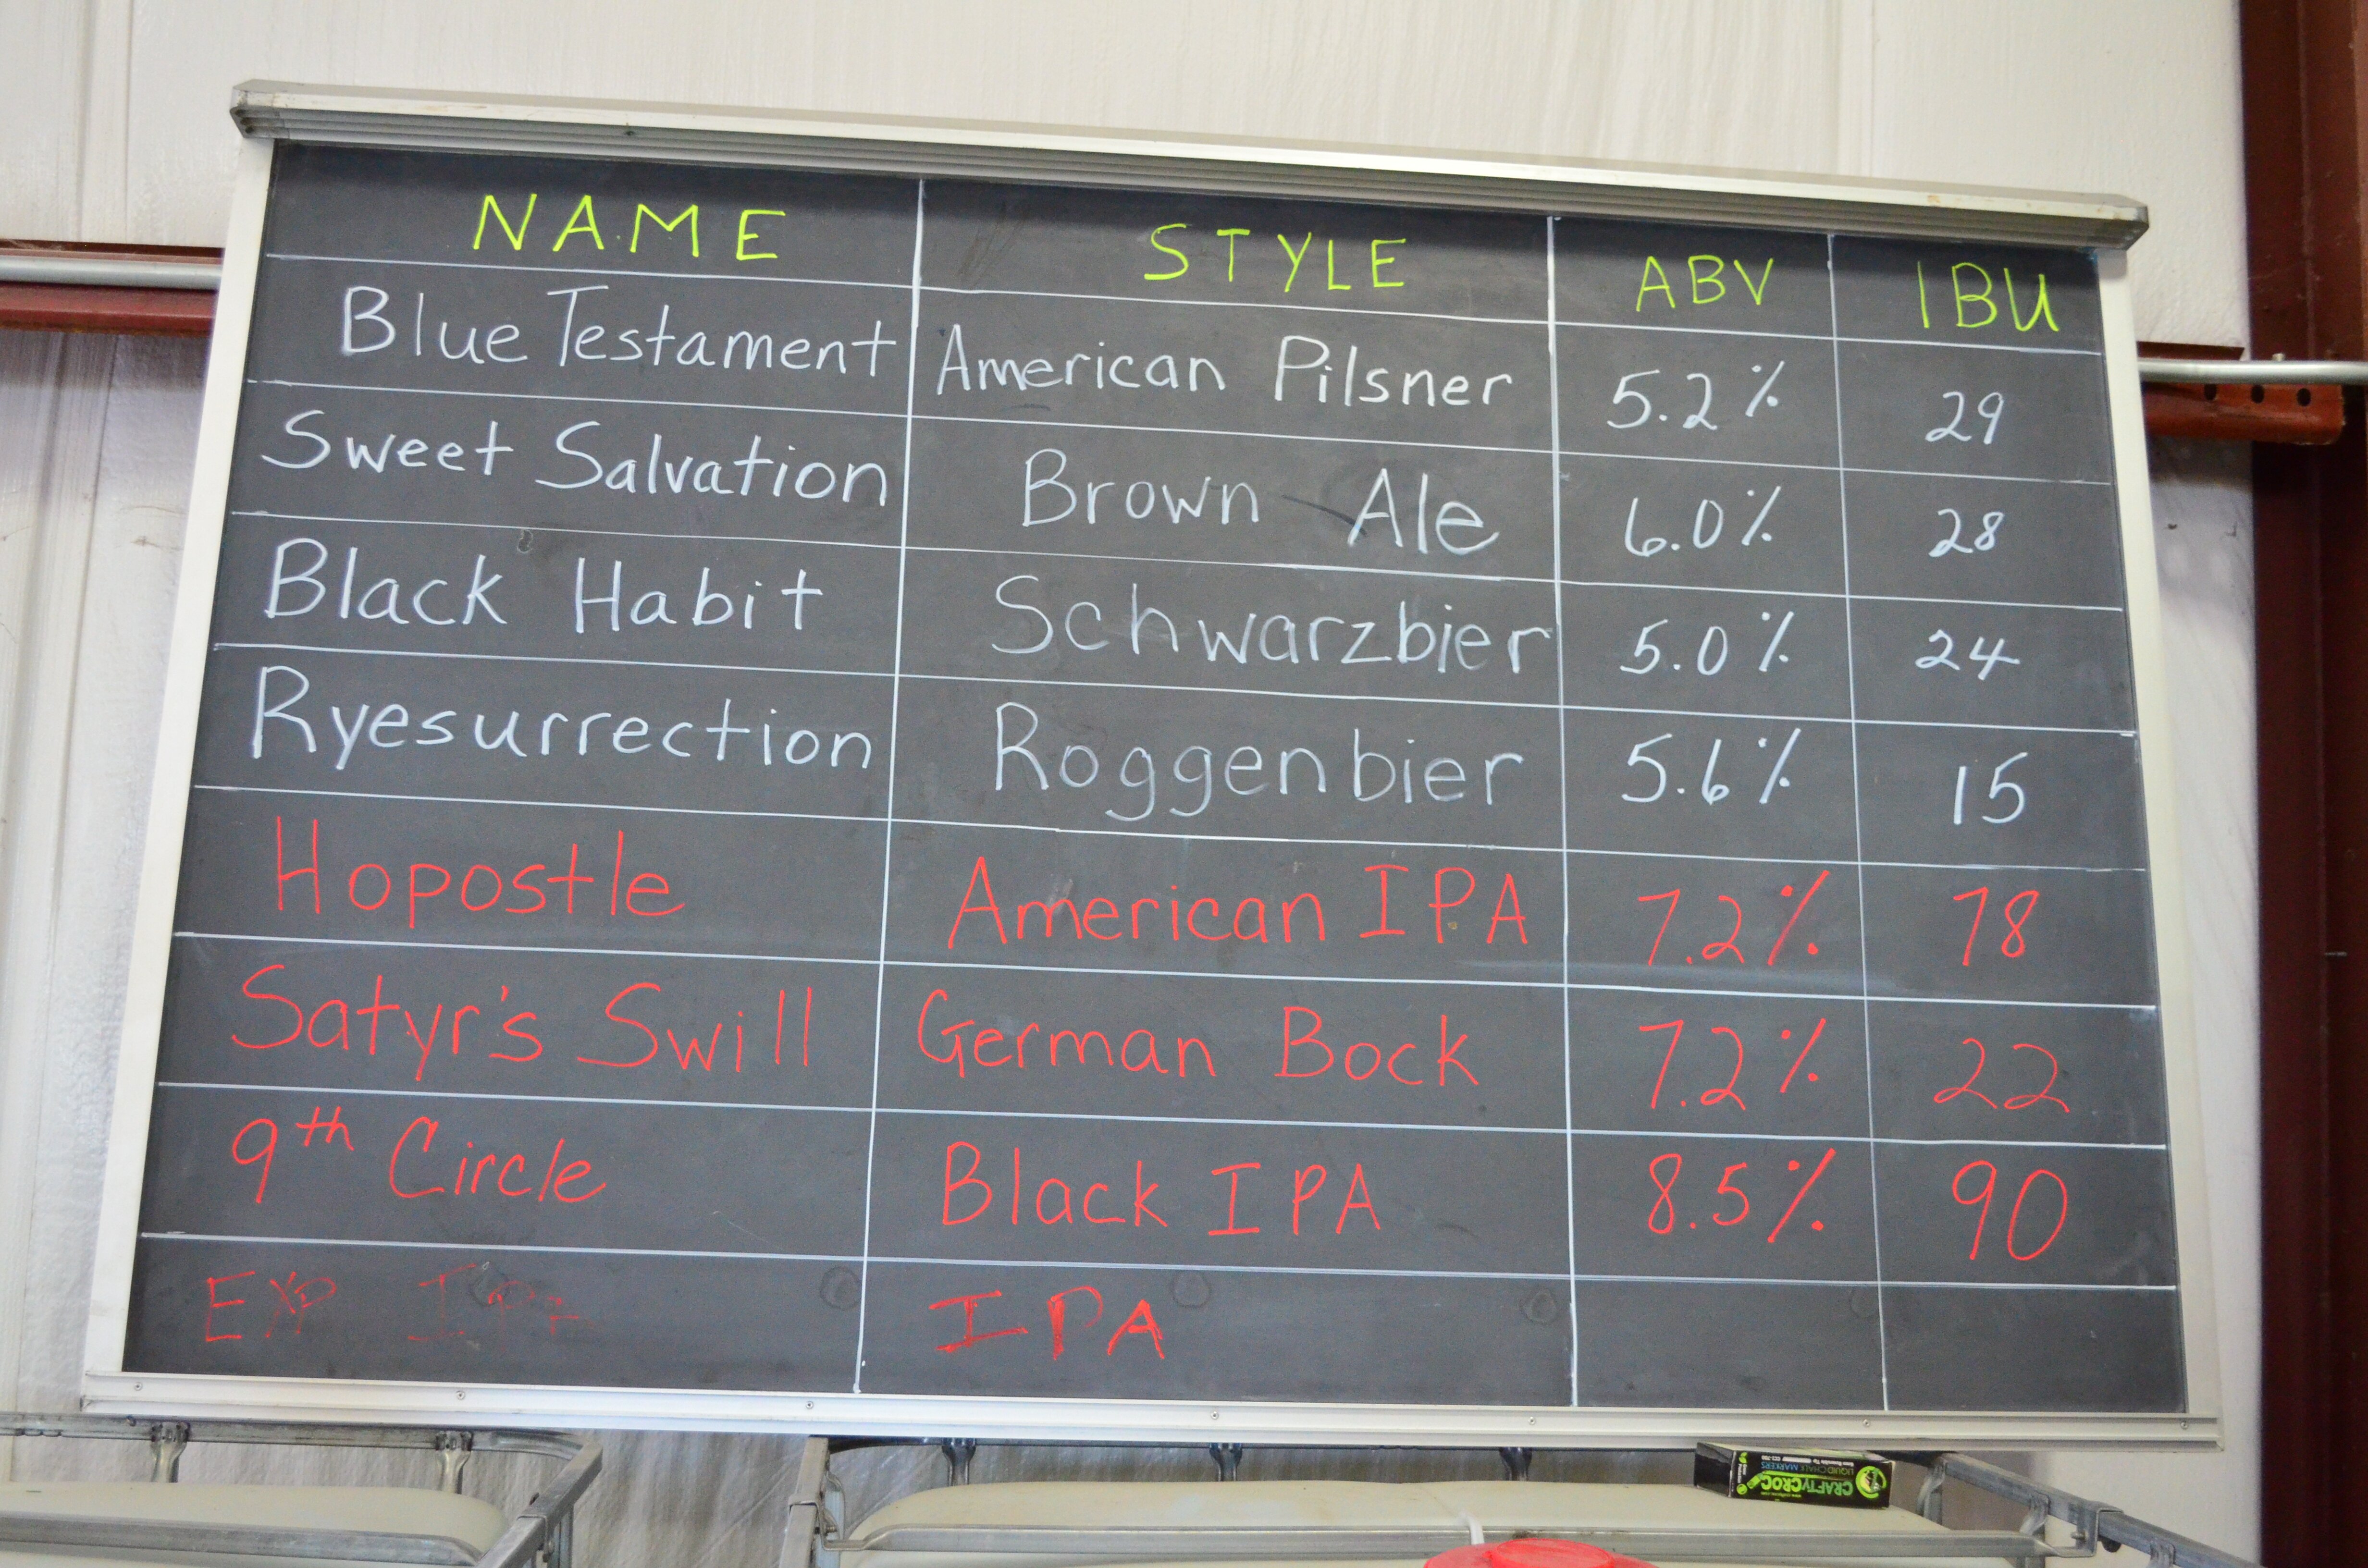 NAME STYLE ABV IBU
Blue Testament American Pilsner 5.2% 29
Sweet Salvation Brown Ale 6.0% 28
Black Habit Schwarzbier 5.0% 24
Ryesurrection Roggenbier 5.6% 15
Hopostle American IPA 7.2% 78
Satyr's Swill German Bock 7.2% 22
9th Circle Black IPA 8.5% 90
EXP IPA IPA
CRAFTYCROC
LIQUID CHALK MARKERS